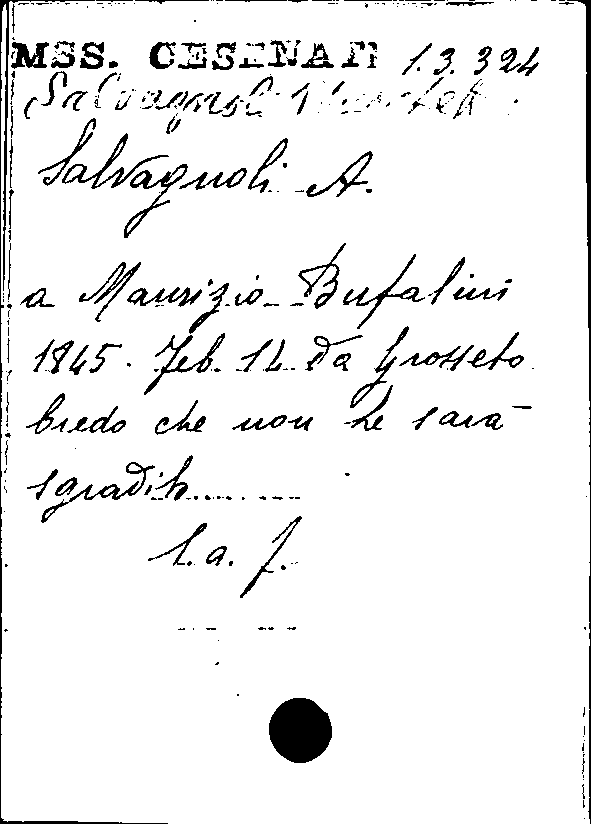 MSS. CESENATI 1.3.324
Salvagnoli
Salvagnoli A.
a Maurizio Bufalini
1845. Feb. 12 da Grosseto
Credo che non Le sarà
sgradito........
L.a.f.